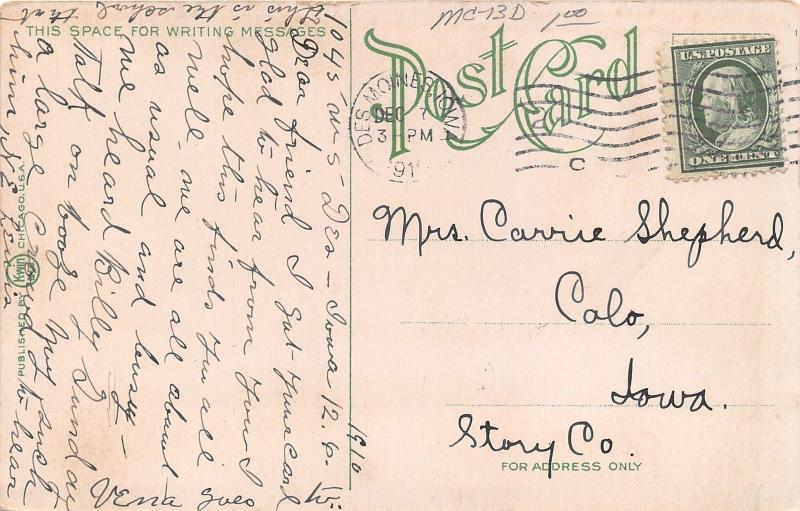 MC-13D 100
THIS SPACE FOR WRITING MESSAGES
Post Card
U.S. POSTAGE
ONE CENT
DES MOINES, IOWA
DEC 7
3-PM
191
C
Mrs. Carrie Shepherd,
Colo,
Iowa.
Story Co.
FOR ADDRESS ONLY
PUBLISHED BY KWIN CHICAGO, U.S.A.
1045 W-5- Des- Iowa 12.6.
1910
Dear friend I Got your card
glad to hear from you I
hope this finds you all
well. we are all about
as usual and busy-
we heard Billy Sunday
talk on booze
a large Crowd to hear
him
this is the school that
Verra goes
to.